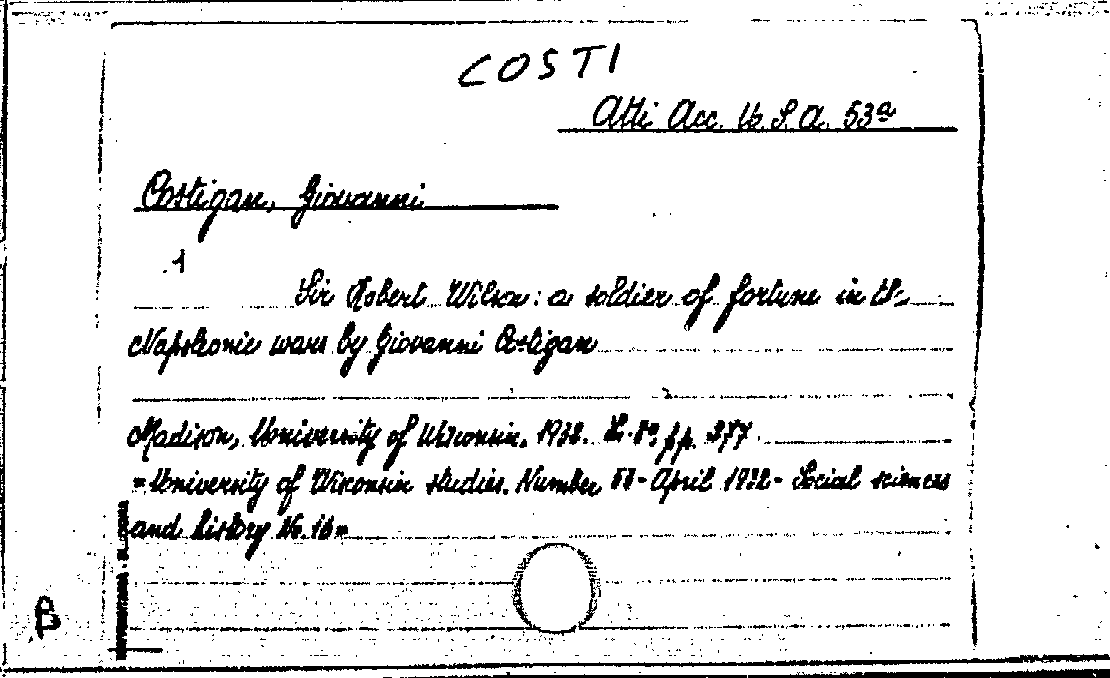 COSTI
Atti Acc. U.S.A. 53ª
Costigan, Giovanni
1
Sir Robert Wilson: a soldier of fortune in the
Napoleonic wars by Giovanni Costigan
Madison, University of Wisconsin, 1932. In-8°, pp. 377
=University of Wisconsin studies. Number - April 1932 - Social sciences
and history No. 16=
B